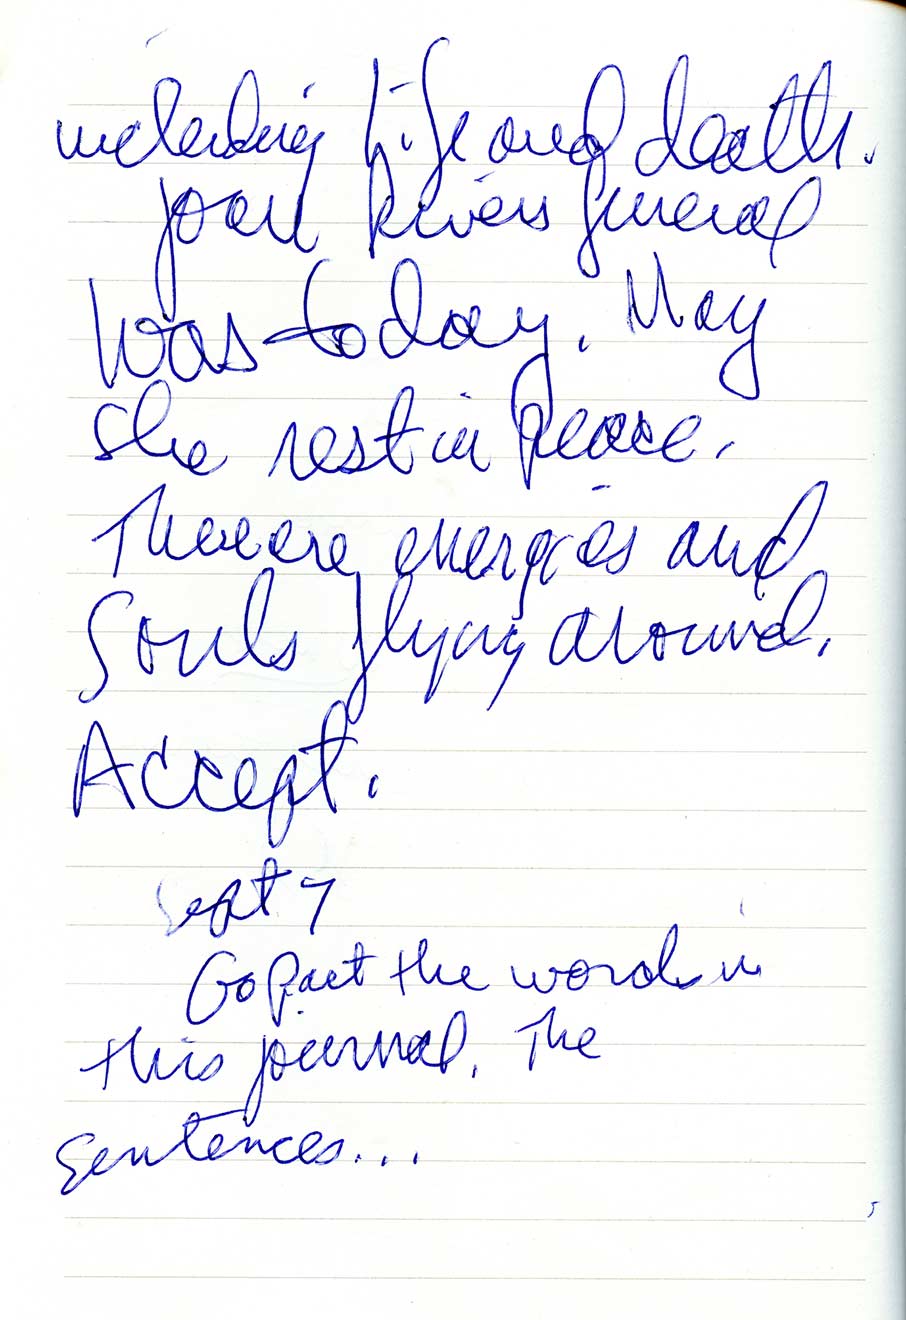 including life and death.
Joan Rivers funeral
was today. May
she rest in peace.
There are energies and
Souls flying around.
Accept.
Sept 7
Go past the words in
this journal. The
sentences...